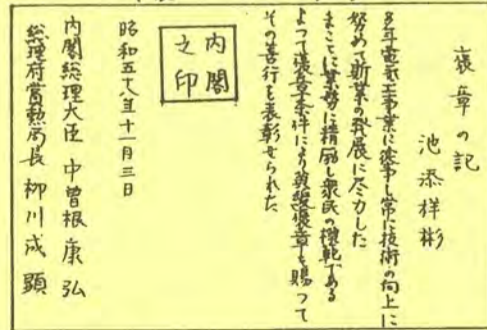 褒章の記
池添祥彬
多年電気工事業に従事し常に技術の向上に
努めて斯業の発展に尽力した
まことに業務に精励し衆民の模範である
よつて褒章条例により黄綬褒章を賜つて
その善行を表彰せられた
内閣
之印
昭和五十八年十一月三日
内閣総理大臣 中曽根康弘
総理府賞勲局長 柳川成顕